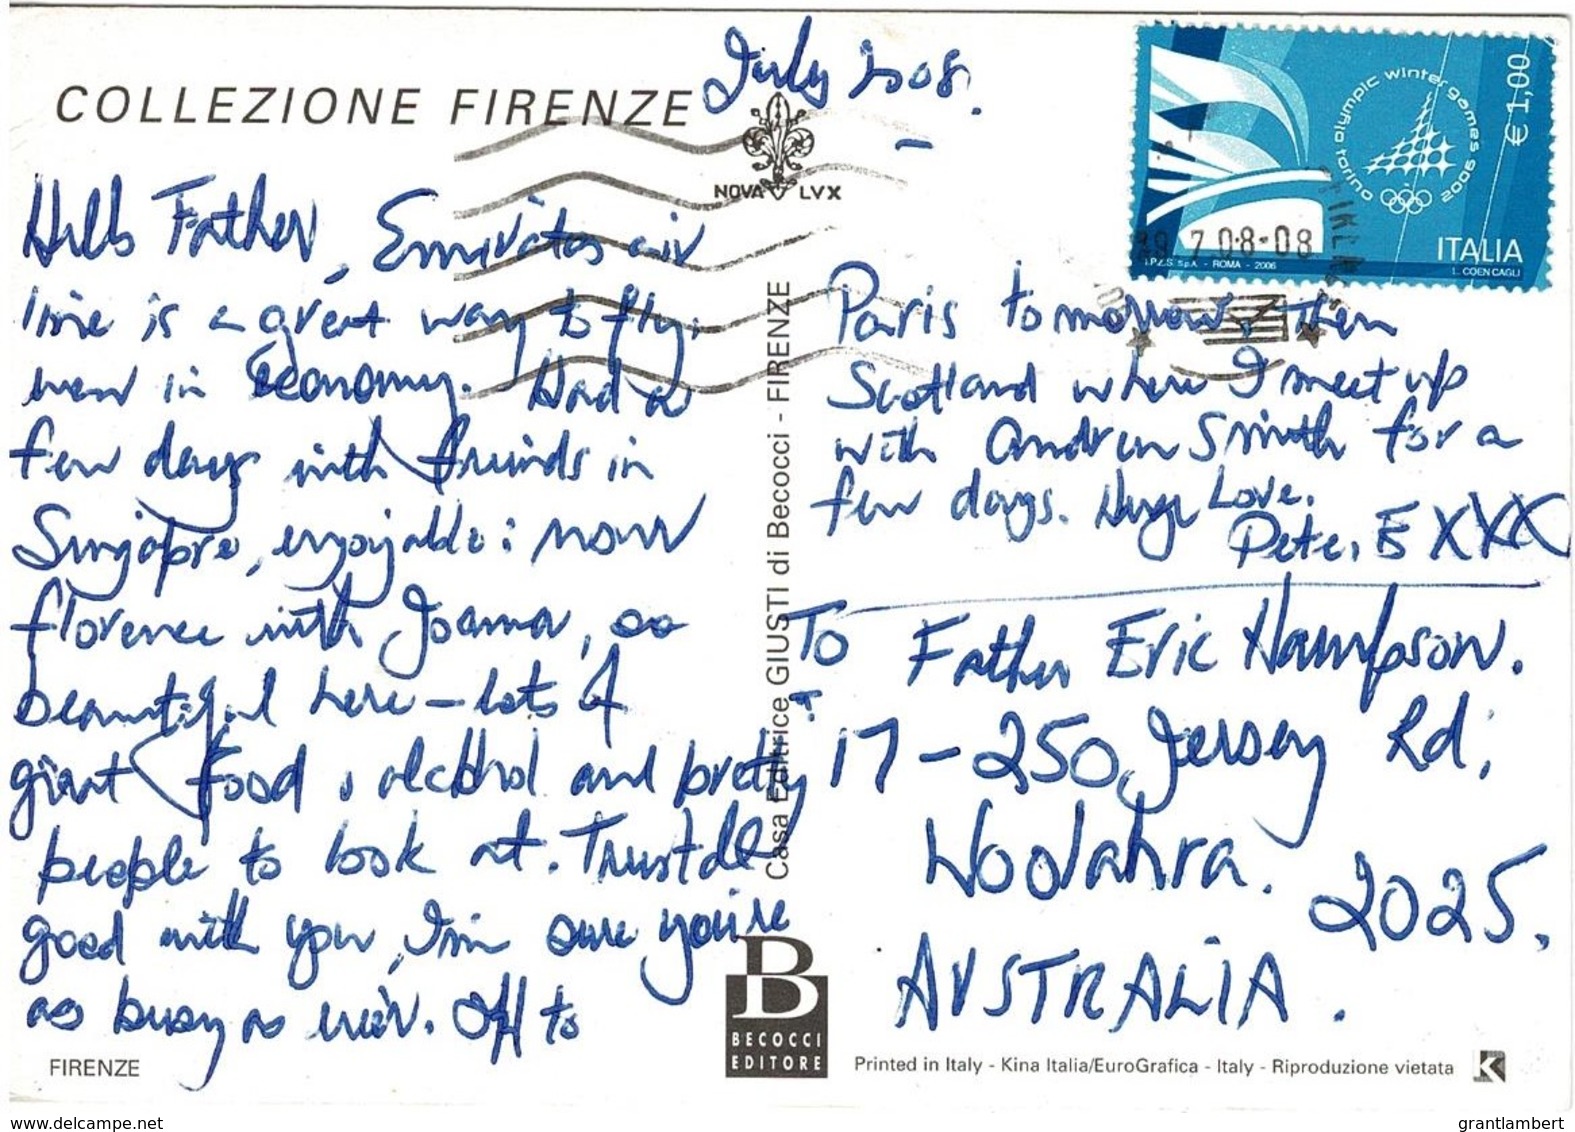 July 2008.
COLLEZIONE FIRENZE
NOVA LVX
torino olympic winter games 2006
€ 1,00
ITALIA
I.P.Z.S. S.p.A. - ROMA - 2006
L. COEN CAGLI
7 08-08
Hello Father, Emirates air
line is a great way to fly,
even in Economy. Had a
few days with friends in
Singapore, enjoyable: now
florence with Joanna, so
beautiful here - lots of
great food, alcohol and pretty
people to look at. Trust all
good with you, I'm sure you're
as busy as ever. Off to
FIRENZE
Casa Editrice GIUSTI di Becocci - FIRENZE
B
BECOCCI
EDITORE
Paris tomorrow, then
Scotland where I meet up
with Andrew Smith for a
few days. Huge Love.
Pete. E XXX
To Father Eric Hampson.
17-250 Jersey Rd,
Woolahra. 2025.
AUSTRALIA.
Printed in Italy - Kina Italia/EuroGrafica - Italy - Riproduzione vietata
K
www.delcampe.net
grantlambert